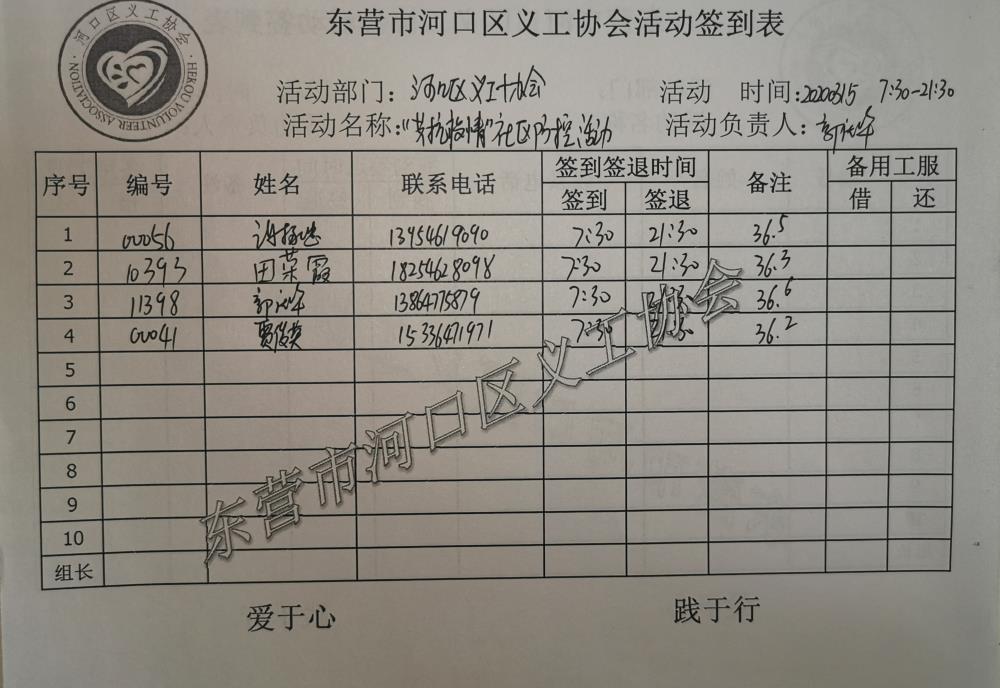 东营市河口区义工协会活动签到表
河口区义工协会
HEKOU VOLUNTEER ASSOCIATION
活动部门：河口区义工协会 活动 时间：20200315 7:30-21:30
活动名称：“共抗疫情”社区防控活动 活动负责人：
序号 编号 姓名 联系电话 签到签退时间 备注 备用工服
签到 签退 借 还
1 00056 13954619090 7:30 21:30 36.5
2 10393 田荣霞 18254628098 7:30 21:30 36.3
3 11398 13864775879 7:30 36.6
4 00041 贾俊英 15336471971 7:30 36.2
5
6
7
8
9
10
组长
东营市河口区义工协会
爱于心 践于行